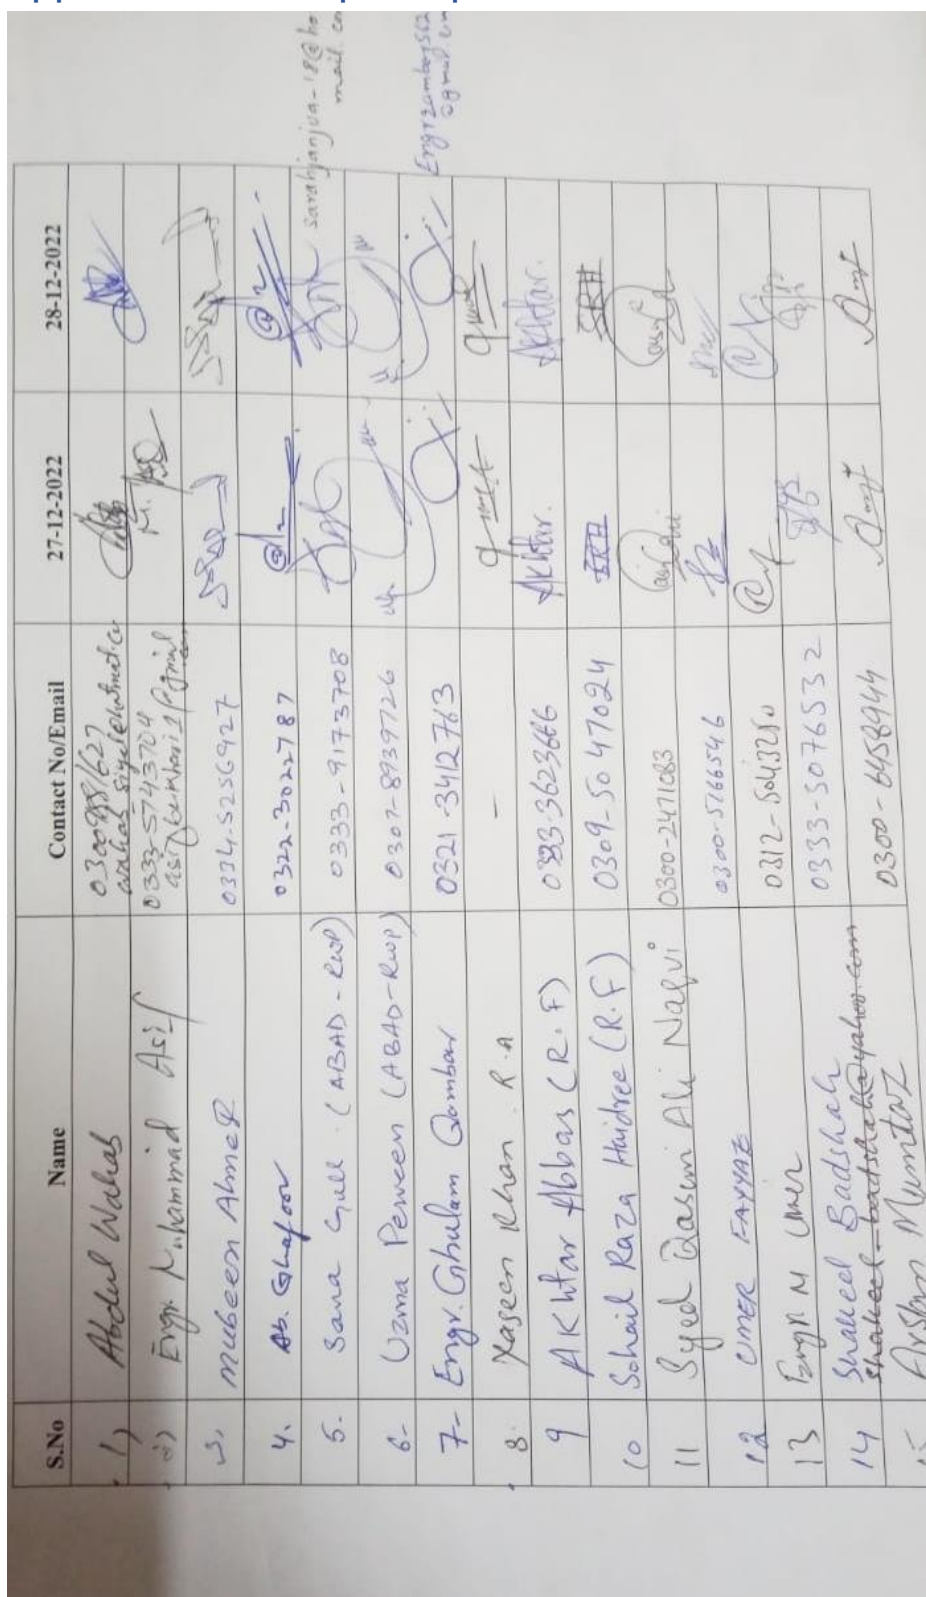 S.No Name Contact No/Email 27-12-2022 28-12-2022
1) Abdul Wahab
2) Engr. Muhammad Asif 0333-5743704 M.
3, Mubeen Ahmed 0334-5256927
4. Ab. Ghafoor 0322-3022787
5. Sana Gull (ABAD-RWP) 0333-9173708 sarahjanjua-18@ho
mail.co
6- Uzma Perveen (ABAD-RWP) 0307-8939726
7- Engr. Ghulam Qambar 0321-3412763 Engrzambar562
@gmail.com
8. Yaseen Khan. R.A -
9 AKhtar Abbas (R.F) 0333-3623666 AKhtar. AKhtar.
10 Sohail Raza Haidree (R.F) 0309-5047024 SRH SRH
11 Syed Qasim Ali Naqvi 0300-2471083
12 UMER FAYYAZ 0300-5166546
13 Engr M Umer 0312-5043250
14 Shaheel Badshah 0333-5077653 2
shaheel-badshah@yahoo.com
15 Arslan Mumtaz 0300-6458944